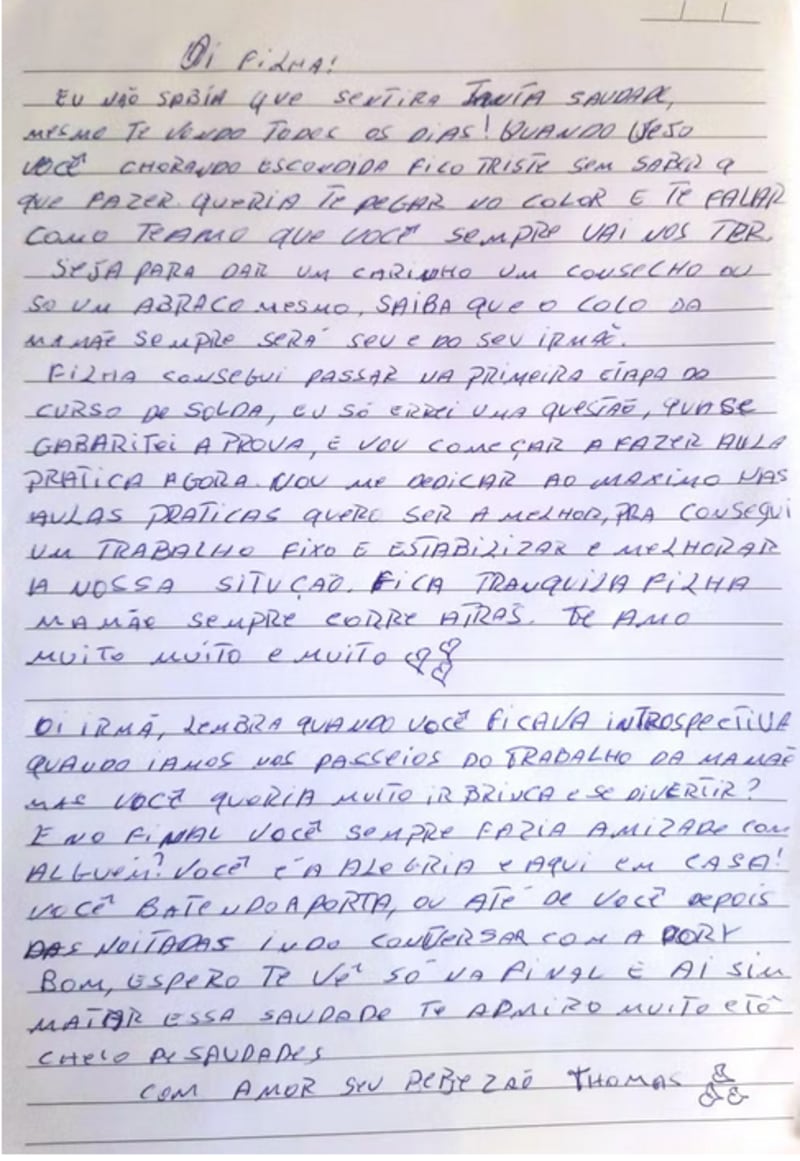 Oi FILHA!
EU NÃO SABIA QUE SENTIRA TANTA SAUDADE,
MESMO TE VENDO TODOS OS DIAS! QUANDO VEJO
VOCÊ CHORANDO ESCONDIDA FICO TRISTE SEM SABER O
QUE FAZER. QUERIA TE PEGAR NO COLOR E TE FALAR
COMO TEAMO QUE VOCÊ SEMPRE VAI NOS TER.
SEJA PARA DAR UM CARINHO UM CONSELHO OU
SO UM ABRACO MESMO, SAIBA QUE O COLO DA
MAMÃE SEMPRE SERÁ SEU E DO SEU IRMÃO.
FILHA CONSEGUI PASSAR NA PRIMEIRA ETAPA DO
CURSO DE SOLDA, EU SÓ ERREI UMA QUESTÃO, QUASE
GABARITEI A PROVA, E VOU COMEÇAR A FAZER AULA
PRATICA AGORA. VOU ME DEDICAR AO MAXIMO NAS
AULAS PRATICAS QUERO SER A MELHOR, PRA CONSEGUI
UM TRABALHO FIXO E ESTABILIZAR E MELHORAR
A NOSSA SITUÇÃO. FICA TRANQUILA FILHA
MAMÃE SEMPRE CORRE ATRAS. TE AMO
MUITO MUITO E MUITO
OI IRMÃ, LEMBRA QUANDO VOCÊ FICAVA INTROSPECTIVA
QUANDO IAMOS NOS PASSEIOS DO TRABALHO DA MAMÃE
MAS VOCÊ QUERIA MUITO IR BRINCA E SE DIVERTIR?
E NO FINAL VOCÊ SEMPRE FAZIA AMIZADE COM
ALGUEM? VOCÊ É A ALEGRIA E AQUI EM CASA!
VOCÊ BATENDO A PORTA, OU ATÉ DE VOCÊ DEPOIS
DAS NOITADAS INDO CONVERSAR COM A DORY
BOM, ESPERO TE VÊ SÓ NA FINAL E AI SIM
MATAR ESSA SAUDADE TE ADMIRO MUITO E TÔ
CHEIO DE SAUDADES
COM AMOR SEU BEBEZÃO THOMAS